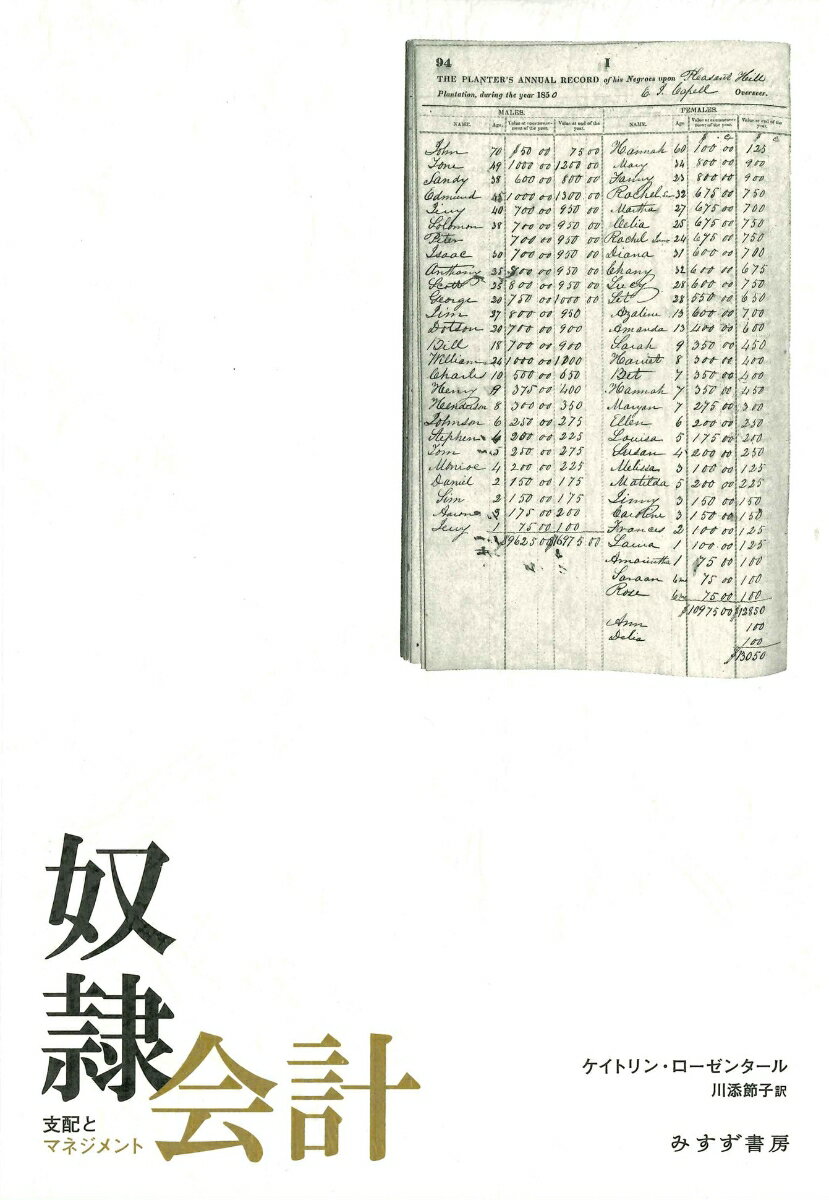 94 I
THE PLANTER'S ANNUAL RECORD of his Negroes upon Pleasant Hill
Plantation, during the year 1850 E. J. Capell Overseer.
MALES. FEMALES.
NAME. Age. Value at commencement of the year. Value at end of the year. NAME. Age Value at commencement of the year. Value at end of the year.
John 70 $50 00 75 00 Hannah 60 100 00 125
Tone 49 1000 00 1200 00 Mary 34 800 00 900
Sandy 38 600 00 800 00 Fanny 23 800 00 900
Edmund 1000 00 1300 00 Rachel 32 675 00 750
40 700 00 950 00 Martha 27 675 00 700
Solomon 38 700 00 950 00 Celia 25 675 00 750
Peter 700 00 950 00 Rachel 24 675 00 750
Isaac 30 700 00 950 00 Diana 31 600 00 700
Anthony 35 800 00 950 00 Chany 32 600 00 675
Scott 25 800 00 950 00 Lucy 28 600 00 750
George 20 750 00 1000 00 28 550 00 650
Jim 27 800 00 950 Azaline 13 600 00 700
Dotson 20 700 00 900 Amanda 13 400 00 600
Bill 18 700 00 900 Sarah 9 350 00 450
William 1000 00 Harriet 8 300 00 400
Charles 10 500 00 650 Bet 7 350 00 400
Henry 375 00 400 Hannah 7 350 00 450
Henderson 8 300 00 350 Maryan 7 275 00 300
Johnson 6 250 00 275 Ellen 6 200 00 250
Stephen 200 00 225 Louisa 5 175 00 200
Tom 5 250 00 275 Susan 4 200 00 250
Monroe 4 200 00 225 Melissa 3 100 00 125
Daniel 2 150 00 175 Matilda 5 200 00 225
Sim 2 150 00 175 3 150 00 150
Aaron 175 00 200 Caroline 3 150 00 150
1 75 00 100 Frances 2 100 00 125
Laura 1 100 00 125
1 75 00 100
75 00 100
Rose 75 00 100
$10975 00 $12850
Ann 100
Delia 100
$13050
奴隷会計
支配と
マネジメント
ケイトリン・ローゼンタール
川添節子訳
みすず書房